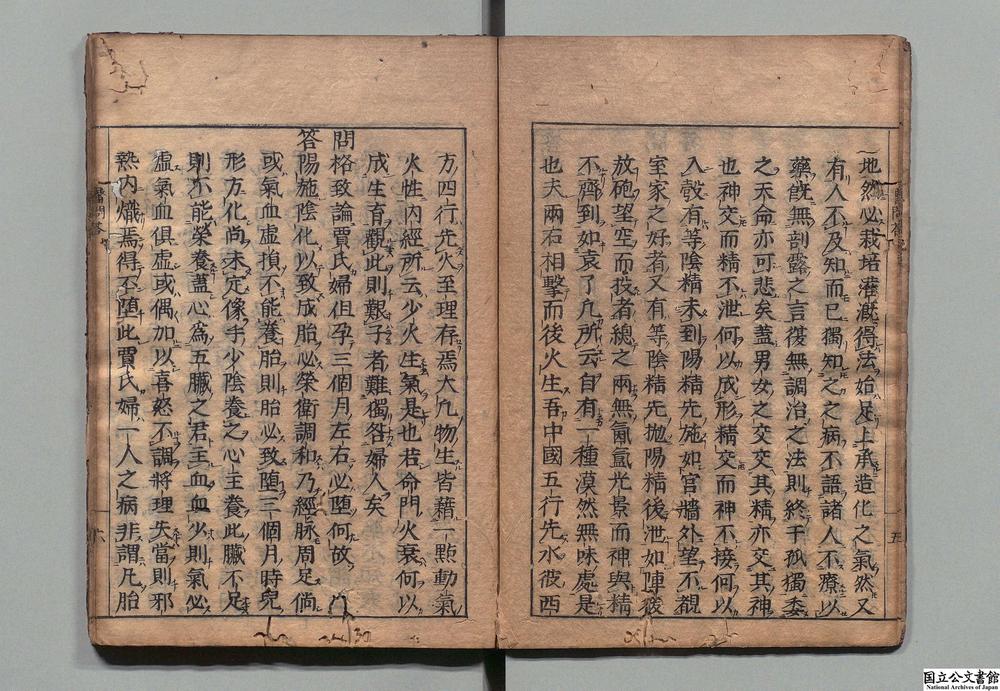 地然必栽培灌漑得法始足上承造化之氣然又
有人不及知而已獨知之之病不語諸人不療以
藥旣無剖露之言復無調治之法則終于孤獨委
之天命亦可悲矣蓋男女之交交其精亦交其神
也神交而精不泄何以成形精交而神不接何以
入彀有等陰精未到陽精先施如官牆外望不覩
室家之好者又有等陰精先抛陽精後泄如陣後
放砲望空而投者總之兩無氤氳光景而神與精
不齊到如袁了凡所云自有一種漠然無味處是
也夫兩石相擊而後火生吾中國五行先水彼西
五
方四行先火至理存焉大凡物生皆藉一點動氣
火性内經所云少火生氣是也若命門火衰何以
成生育觀此則艱子者難獨咎婦人矣
問格致論賈氏婦但孕三個月左右必堕何故
答陽施陰化以致成胎必榮衛調和乃經脉周足倘
或氣血虛損不能養胎則胎必致堕三個月時兒
形方化尚未定像手少陰養之心主養此臟不足
則不能榮養蓋心爲五臟之君主血血少則氣必
虛氣血俱虛或偶加以喜怒不調將理失當則邪
熱内熾焉得不堕此賈氏婦一人之病非謂凡胎
六
国立公文書館
National Archives of Japan